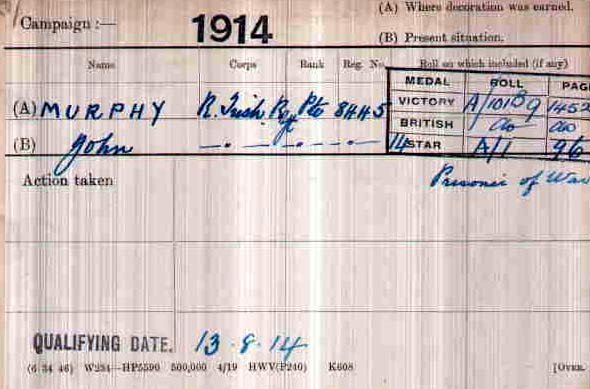 Campaign :— 1914 (A) Where decoration was earned.
(B) Present situation.
Name Corps Rank Reg. No. Roll on which included (if any)
MEDAL ROLL PAGE
(A) MURPHY R. Irish Rgt Pte 8445 VICTORY A/101B9 1452
BRITISH do do
(B) John — . — . — . — 14 STAR A/1 96
Action taken Prisoner of War
QUALIFYING DATE. 13.8.14
(6 34 46) W234—HP5590 500,000 4/19 HWV(P240) K608 [OVER.